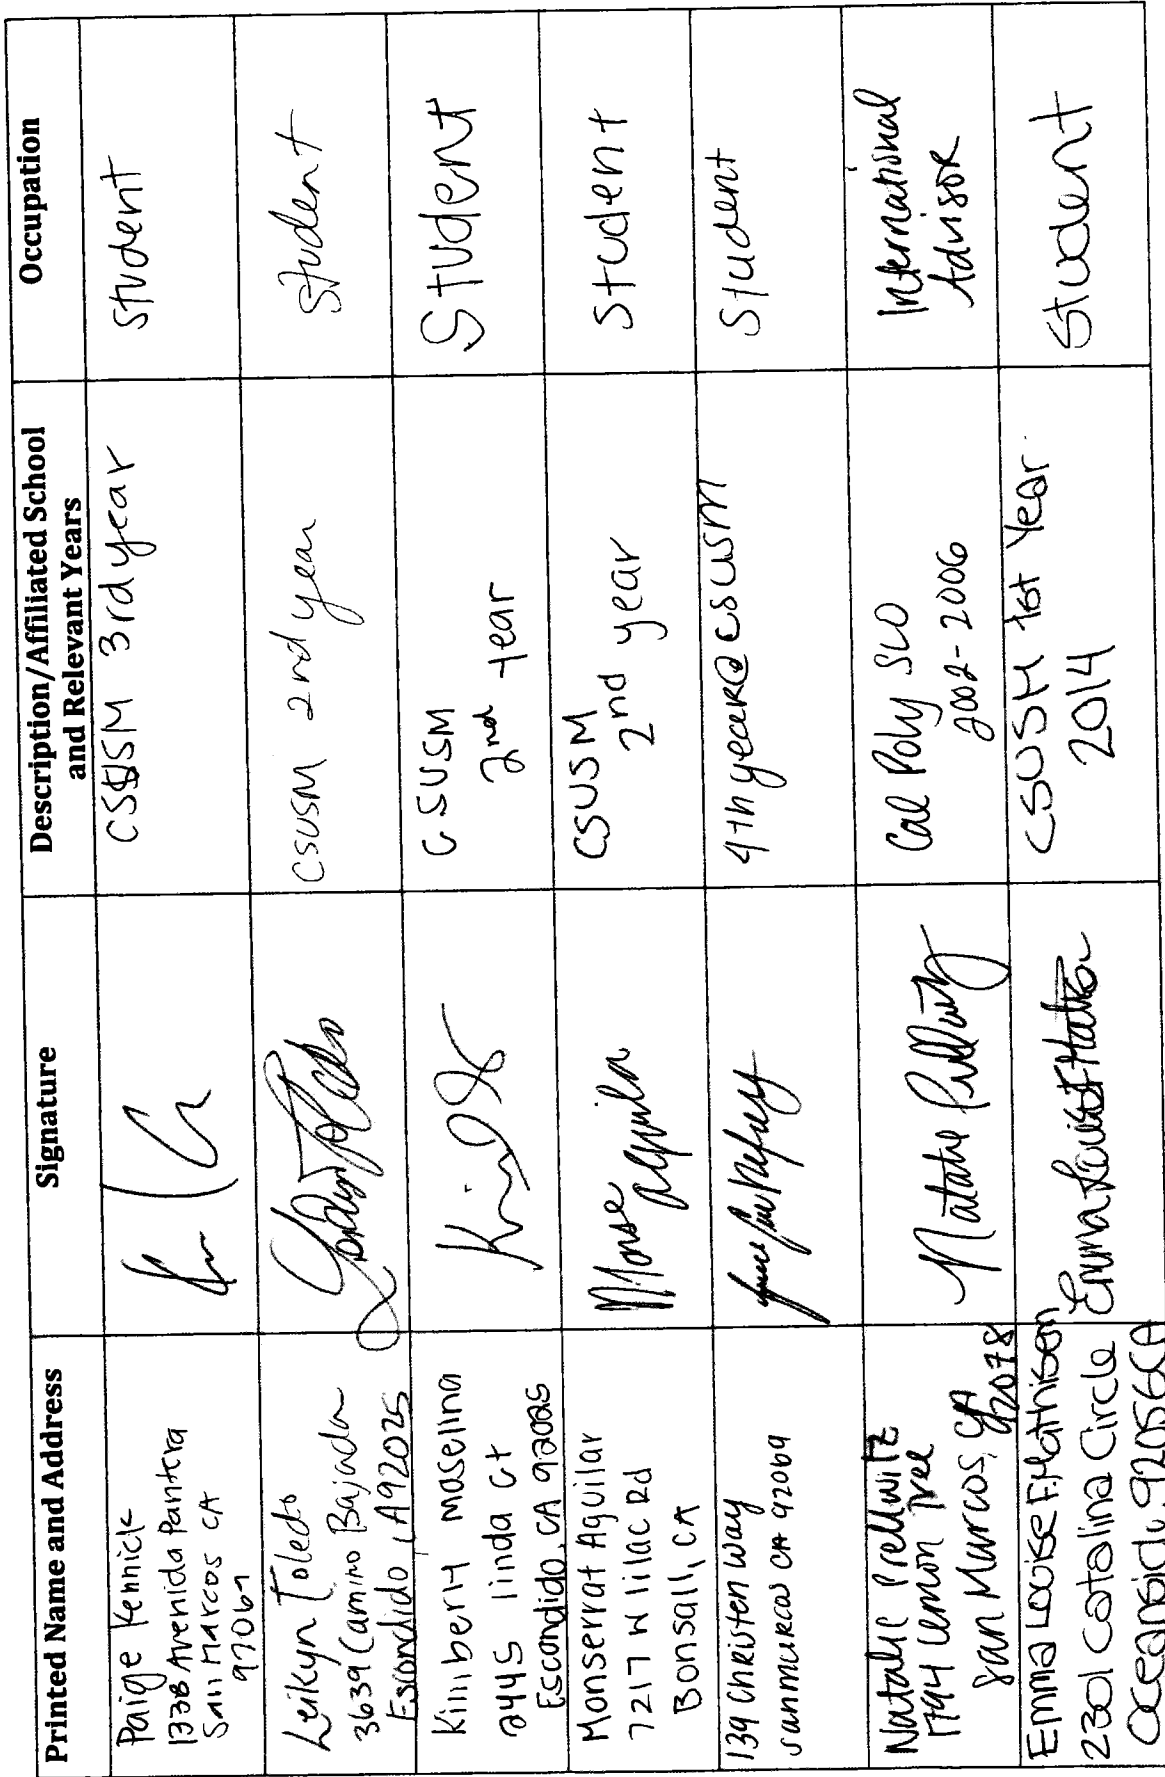 Printed Name and Address
Signature
Description/Affiliated School
and Relevant Years
Occupation
Paige Kennick
1338 Avenida Pantera
San Marcos CA
92069
CSUSM 3rd year
Student
Leikyn Toledo
3639 Camino Bajada
Escondido CA 92025
CSUSM 2nd year
Student
Kimberly Maselina
2445 linda ct
Escondido, CA 92025
CSUSM
2nd year
Student
Monserrat Aguilar
7217 W lilac Rd
Bonsall, CA
Monse
Aguila
CSUSM
2nd year
Student
139 Christen Way
San Marcos CA 92069
4th year @ CSUSM
Student
Natalie Prellwitz
1794 Lemon Tree
San Marcos, CA
92078
Natalie Prellwitz
Cal Poly SLO
2002-2006
International
Advisor
Emma Louise F. Mathisen
2301 Catalina Circle
Oceanside, 92056 CA
Emma Louise F Mathisen
CSUSM 1st Year
2014
Student